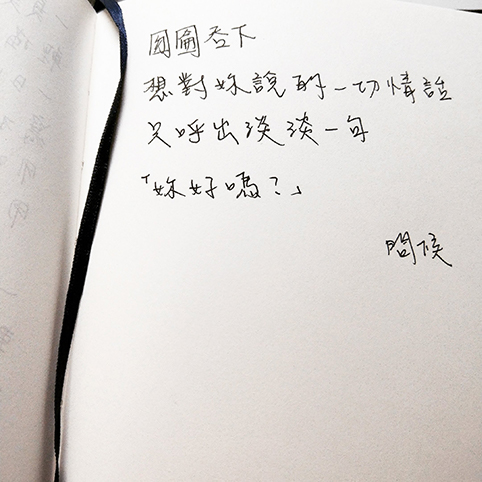 囫圇吞下
想對妳說的一切情話
只呼出淡淡一句
「妳好嗎？」
問候